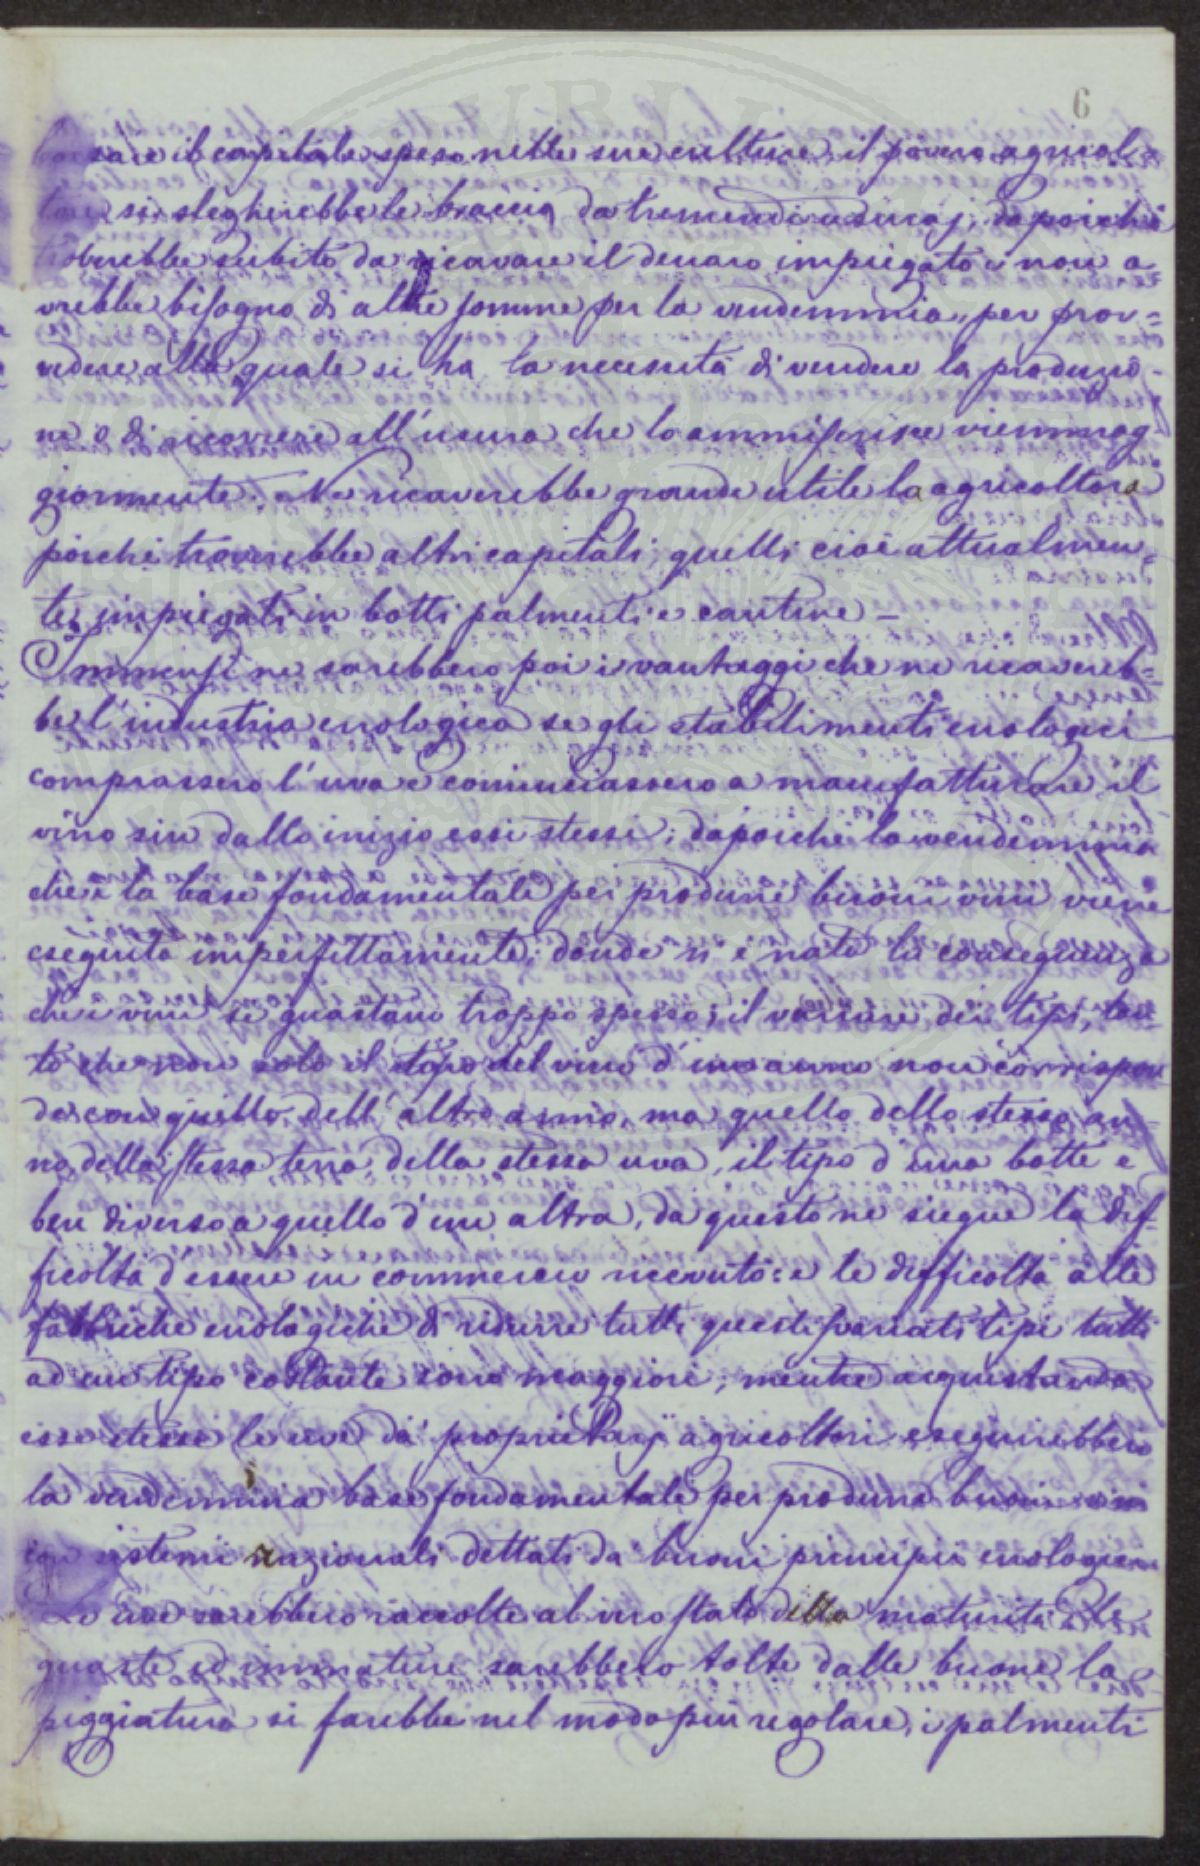 6
il capitale speso nelle sue culture, il povero agricol=
si slegherebbe le braccia da tremendi usuraj; dapoichè
subito da ricavare il denaro impiegato e non a=
vrebbe bisogno di altre somme per la vendemmia, per prov=
vedere alla quale si ha la necessità di vendere la produzio-
ne o di ricorrere all'usura che lo ammiserisce viemmag
giormente. Ne ricaverebbe grande utile la agricoltora
poichè troverebbe altri capitali, quelli cioè attualmen=
te impiegati in botti palmenti e cantine —
Immensi ne sarebbero poi i vantaggi che ne ricavereb=
be l'industria enologica se gli stabilimenti enologici
comprassero l'uva e cominciassero a manufatturare il
vino sin dallo inizio essi stessi; dapoichè la vendemmia
che è la base fondamentale per produrre buoni vini viene
eseguita imperfettamente; donde n'è nata la conseguenza
che i vini si guastano troppo spesso; il variare dei tipi, tan=
to che non solo il tipo del vino d'un anno non corrispon
de con quello dell'altro anno, ma quello dello stesso an=
no, della stessa terra della stessa uva, il tipo d'una botte e
ben diverso a quello d'un altra, da questo ne siegue la dif=
ficoltà d'essere in commercio ricevuto: e le difficoltà alle
fabbriche enologiche di ridurre tutti questi svariati tipi tutti
ad un tipo costante sono maggiori; mentre acquistando
esse stesse le uve da' proprietarj agricoltori eseguirebbero
la vendemmia base fondamentale per produrre buoni vini
con sistemi razionali dettati da buoni principii enologici.
Le uve sarebbero raccolte al vero stato della maturità: le
guaste ed immature sarebbero tolte dalle buone, la
piggiatura si farebbe nel modo più regolare, i palmenti